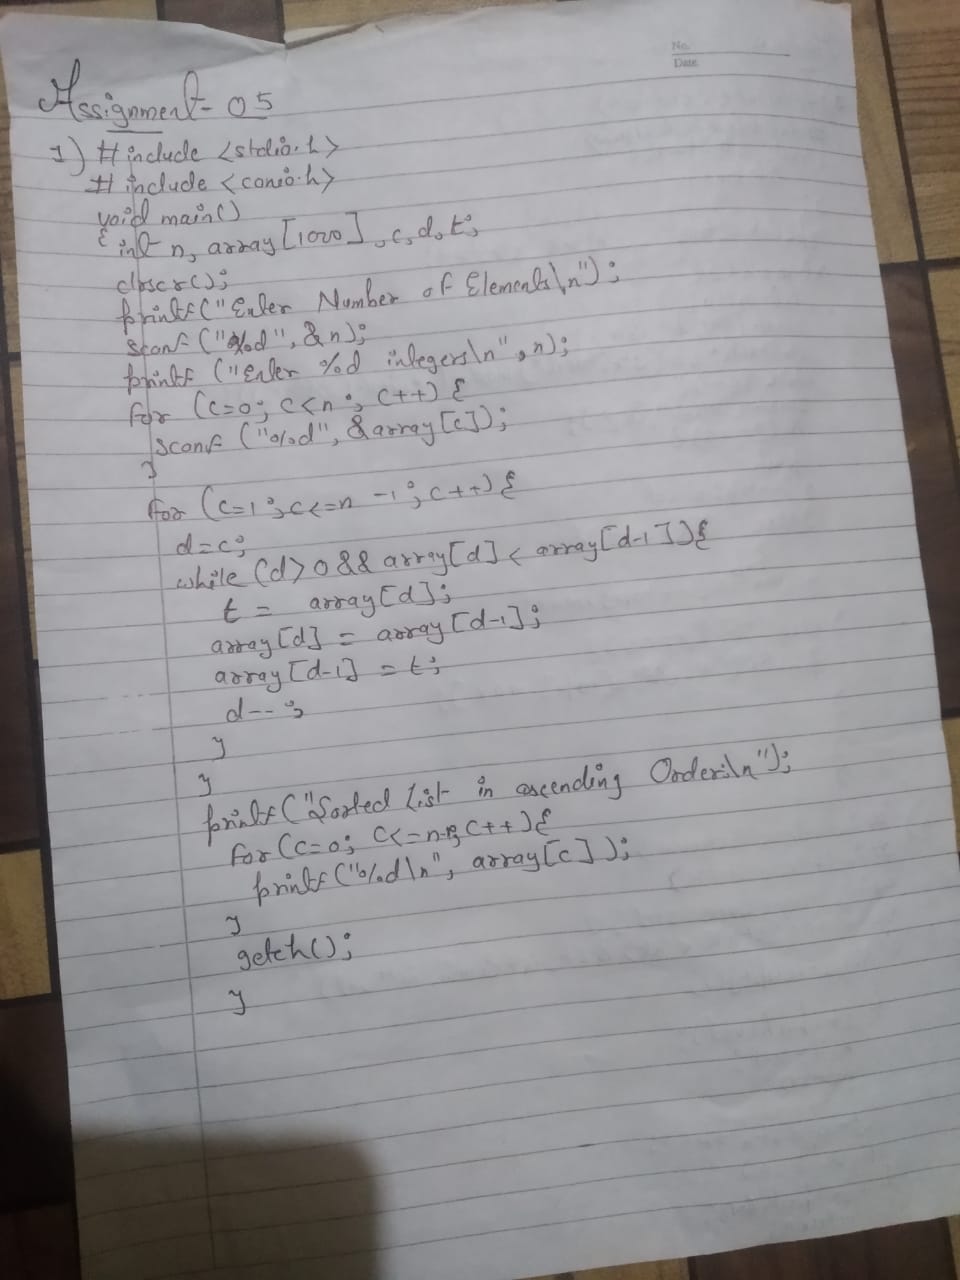 No.
Date
Assignment- 05
1) # include <stdio.h>
# include <conio.h>
void main()
{ int n, array [1000], c, d, t;
clrscr();
printf("Enter Number of Elements\n");
scanf ("%d", &n);
printf ("Enter %d integers\n", n);
for (c=0; c<n; c++) {
scanf ("%d", &array[c]);
}
for (c=1; c<=n -1; c++) {
d=c;
while (d>0 && array[d] < array[d-1]) {
t = array[d];
array[d] = array[d-1];
array[d-1] = t;
d--;
}
}
printf("Sorted List in ascending Order:\n");
for (c=0; c<=n-1; c++) {
printf ("%d\n", array[c]);
}
getch();
}